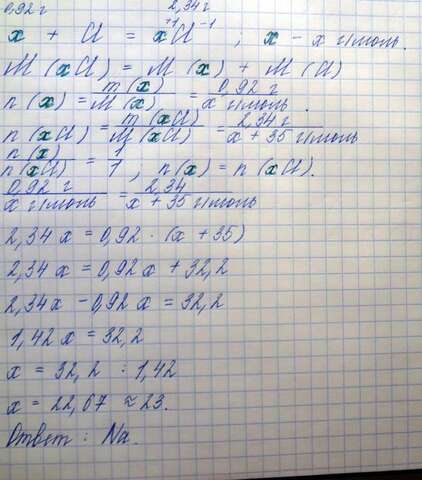 0,92 г 2,34 г
x + Cl = x⁺¹Cl⁻¹ ; x – x г/моль.
M (xCl) = M (x) + M (Cl)
n (x) = m (x) / M (x) = 0,92 г / x г/моль.
n (xCl) = m (xCl) / M (xCl) = 2,34 г / x + 35 г/моль
n (x) / n (xCl) = 1 / 1 ; n (x) = n (xCl).
0,92 г / x г/моль = 2,34 / x + 35 г/моль
2,34 x = 0,92 · (x + 35)
2,34 x = 0,92 x + 32,2
2,34x – 0,92 x = 32,2
1,42 x = 32,2
x = 32,2 : 1,42
x = 22,67 ≈ 23.
Ответ : Na.